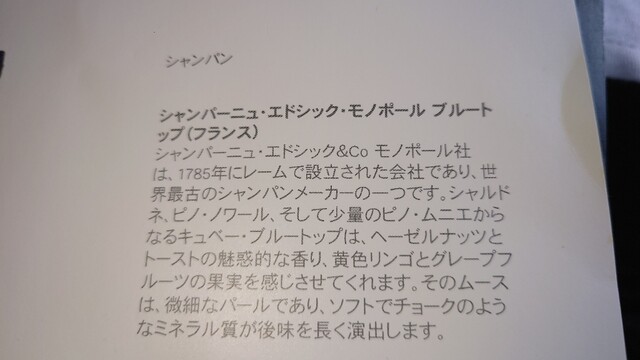 シャンパン
シャンパーニュ・エドシック・モノポール ブルート
ップ(フランス)
シャンパーニュ・エドシック&Co モノポール社
は、1785年にレームで設立された会社であり、世
界最古のシャンパンメーカーの一つです。シャルド
ネ、ピノ・ノワール、そして少量のピノ・ムニエから
なるキュベー・ブルートップは、ヘーゼルナッツと
トーストの魅惑的な香り、黄色リンゴとグレープフ
ルーツの果実を感じさせてくれます。そのムース
は、微細なパールであり、ソフトでチョークのよう
なミネラル質が後味を長く演出します。